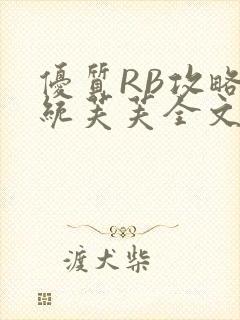 優質RB攻略
統芙芙全文
渡犬柴